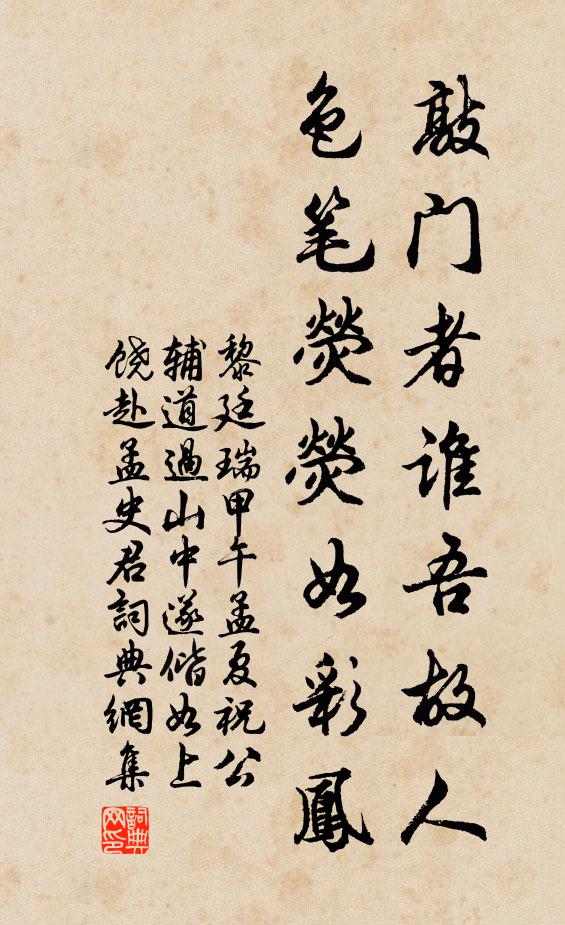 敲门者谁吾故人
色笔熒熒如彩鳳
黎廷瑞甲午孟夏祝公
辅道過山中遂偕如上
饶赴孟史君詞典網集
詞典网印